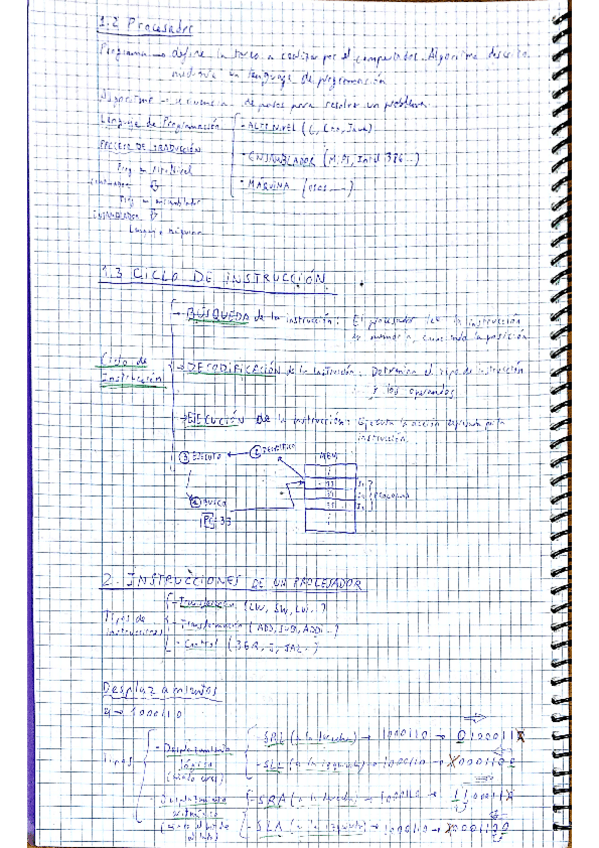 1.2 Procesador
Programa → define la tarea a realizar por el computador. Algoritmo descrito
mediante un lenguaje de programación
Algoritmo → secuencia de pasos para resolver un problema
Lenguaje de Programación - ALTO NIVEL (C, C++, Java)
PROCESO DE TRADUCCIÓN
Prog en alto nivel - ENSAMBLADOR (MIPS, Intel 386..)
Prog en ensamblador - MÁQUINA (0101...)
Lenguaje máquina
1.3 CICLO DE INSTRUCCIÓN
→ BÚSQUEDA de la instrucción: El procesador lee la instrucción
de memoria, la posición
Ciclo de
Instrucción
→ DECODIFICACIÓN de la instrucción: Determina el tipo de instrucción
y los operandos
→ EJECUCIÓN de la instrucción: Ejecuta la acción por la
instrucción
3 EJECUTO ← 2 MEM
1 BUSCO
PC = 33
2. INSTRUCCIONES DE UN PROCESADOR
Tipos de
instrucciones
- Transferencia (LW, SW, LUI..)
- Transformación (ADD, SUB, ADDI..)
- Control (BEQ, J, JAL..)
Desplazamientos
a → 1000110
Tipos
- Desplazamiento
lógico
- SRL (a la derecha) → 1000110 → 01000110
- SLL (a la izquierda) → 1000110 → 10001100
- Desplazamiento
aritmético
- SRA (a la derecha) → 1000110 →
- SLA (a la izquierda) → 1000110 →